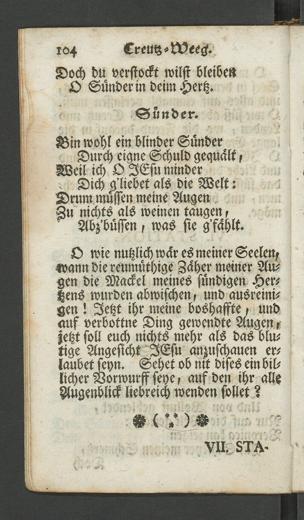 104 Creutz-Weeg.
Doch du verstockt wilst bleiben
O Sünder in deim Hertz.
Sünder.
Bin wohl ein blinder Sünder
Durch eigne Schuld gequält,
Weil ich O JEsu minder
Dich g'liebet als die Welt:
Drum müssen meine Augen
Zu nichts als weinen taugen,
Abz'büssen, was sie g'fählt.
O wie nutzlich wär es meiner Seelen,
wann die reumüthige Zäher meiner Au-
gen die Mackel meines sündigen Her-
tzens wurden abwischen, und ausreini-
gen! Jetzt ihr meine boshaffte, und
auf verbottne Ding gewendte Augen,
jetzt soll euch nichts mehr als das blu-
tige Angesicht JEsu anzuschauen er-
laubet seyn. Sehet ob nit dises ein bil-
licher Vorwurff seye, auf den ihr alle
Augenblick liebreich wenden sollet?
VII. STA-